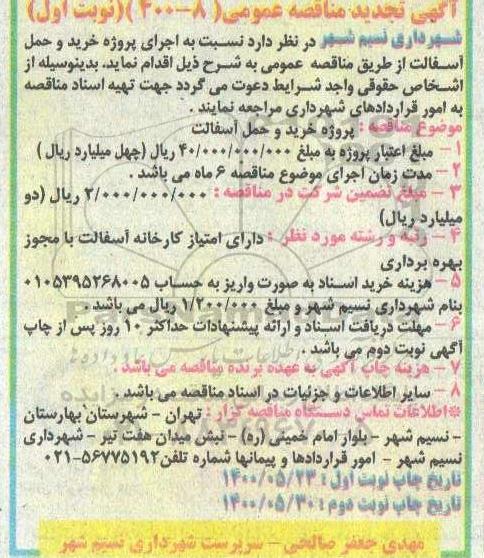 آگهی تجدید مناقصه عمومی( ۸-۴۰۰ )(نوبت اول)
شهرداری نسیم شهر در نظر دارد نسبت به اجرای پروژه خرید و حمل
آسفالت از طریق مناقصه عمومی به شرح ذیل اقدام نماید. بدینوسیله از
اشخاص حقوقی واجد شرایط دعوت می گردد جهت تهیه اسناد مناقصه
به امور قراردادهای شهرداری مراجعه نمایند .
موضوع مناقصه : پروژه خرید و حمل آسفالت
۱- مبلغ اعتبار پروژه به مبلغ ۴۰/۰۰۰/۰۰۰/۰۰۰ ریال (چهل میلیارد ریال )
۲- مدت زمان اجرای موضوع مناقصه ۶ ماه می باشد .
۳- مبلغ تضمین شرکت در مناقصه : ۲/۰۰۰/۰۰۰/۰۰۰ ریال (دو
میلیارد ریال)
۴- رتبه و رشته مورد نظر : دارای امتیاز کارخانه آسفالت با مجوز
بهره برداری
۵- هزینه خرید اسناد به صورت واریز به حساب ۰۱۰۵۳۹۵۲۶۸۰۰۵
بنام شهرداری نسیم شهر و مبلغ ۱/۲۰۰/۰۰۰ ریال می باشد .
۶- مهلت دریافت اسناد و ارائه پیشنهادات حداکثر ۱۰ روز پس از چاپ
آگهی نوبت دوم می باشد .
۷- هزینه چاپ آگهی به عهده برنده مناقصه می باشد .
۸- سایر اطلاعات و جزئیات در اسناد مناقصه می باشد .
*اطلاعات تماس دستگاه مناقصه گزار : تهران - شهرستان بهارستان
- نسیم شهر - بلوار امام خمینی (ره) - نبش میدان هفت تیر - شهرداری
نسیم شهر - امور قراردادها و پیمانها شماره تلفن۵۶۷۷۵۱۹۲-۰۲۱
تاریخ چاپ نوبت اول : ۱۴۰۰/۰۵/۲۳
تاریخ چاپ نوبت دوم : ۱۴۰۰/۰۵/۳۰
مهدی جعفر صالحی - سرپرست شهرداری نسیم شهر